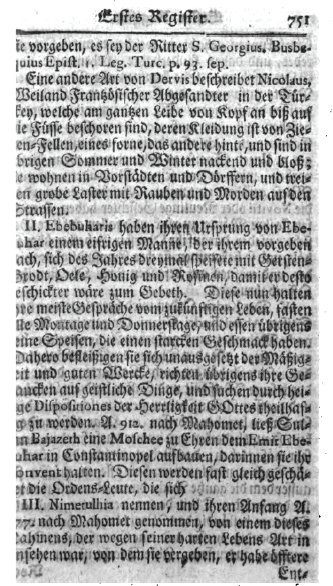 Erstes Register. 751
sie vorgeben, es sey der Ritter S. Georgius, Busbe-
quius Epist. 1. Leg. Turc. p. 93. seq.
Eine andere Art von Dervis beschreibet Nicolaus,
Weiland Frantzösischer Abgesandter in der Tür-
key, welche am gantzen Leibe von Kopf an biß auf
die Füsse beschoren sind, deren Kleidung ist von Zie-
gen-Fellen, eines forne, das andere hinte, und sind in
übrigen Sommer und Winter nackend und bloß;
sie wohnen in Vorstädten und Dörffern, und trei-
ben grobe Laster mit Rauben und Morden auf den
Strassen.
II. Ebebuharis haben ihren Ursprung von Ebe-
buhar einem eifrigen Manne, der ihrem vorgeben
nach, sich des Jahres dreymal speisete mit Gersten-
Brodt, Oele, Honig und Rosinen, damit er desto
geschickter wäre zum Gebeth. Diese nun halten
ihre meiste Gespräche vom zukünftigen Leben, fasten
alle Montage und Donnerstage, und essen übrigens
keine Speisen, die einen starcken Geschmack haben.
Dahero befleißigen sie sich unausgesetzt der Mäßig-
keit und guten Wercke, richten übrigens ihre Ge-
dancken auf geistliche Dinge, und suchen durch hei-
lige Dispositiones der Herrligkeit GOttes theilhaf-
tig zu werden. A. 912. nach Mahomet, ließ Sul-
tan Bajazeth eine Moschee zu Ehren dem Emir Ebe-
buhar in Constantinopel aufbauen, darinnen sie ihr
Convent halten. Diesen werden fast gleich geschä-
tzet die Ordens-Leute, die sich
III. Nimetullhia nennen, und ihren Anfang A.
777. nach Mahomet genommen, von einem dieses
Nahmens, der wegen seiner harten Lebens Art in
Ansehen war, von dem sie vorgeben, er habe öfftere
Ent-